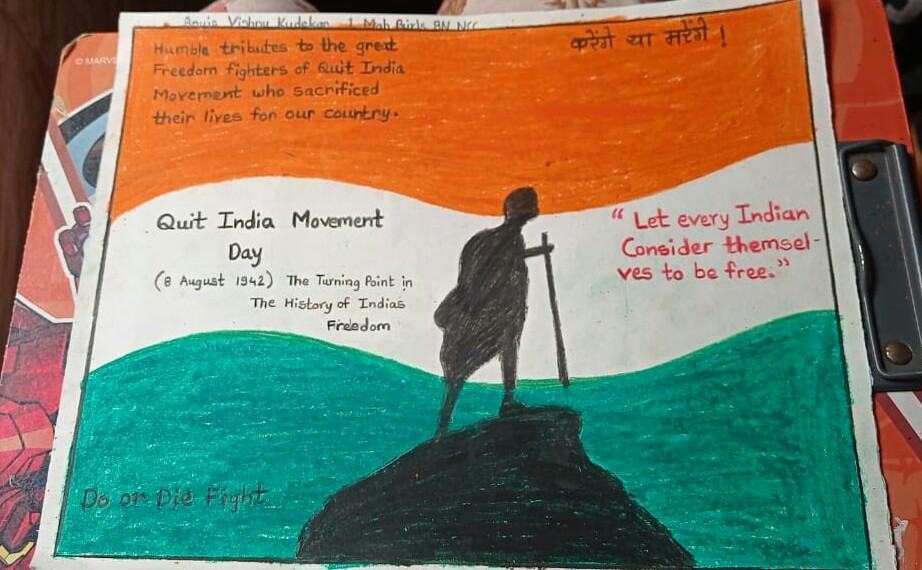 Vishnu Kudekar 1 Mah Girls BN NCC
© MARV
Humble tributes to the great
Freedom fighters of Quit India
Movement who sacrificed
their lives for our country.
करेंगे या मरेंगे !
Quit India Movement
Day
(8 August 1942) The Turning Point in
The History of Indias
Freedom
“ Let every Indian
Consider themsel-
ves to be free.”
Do or Die Fight